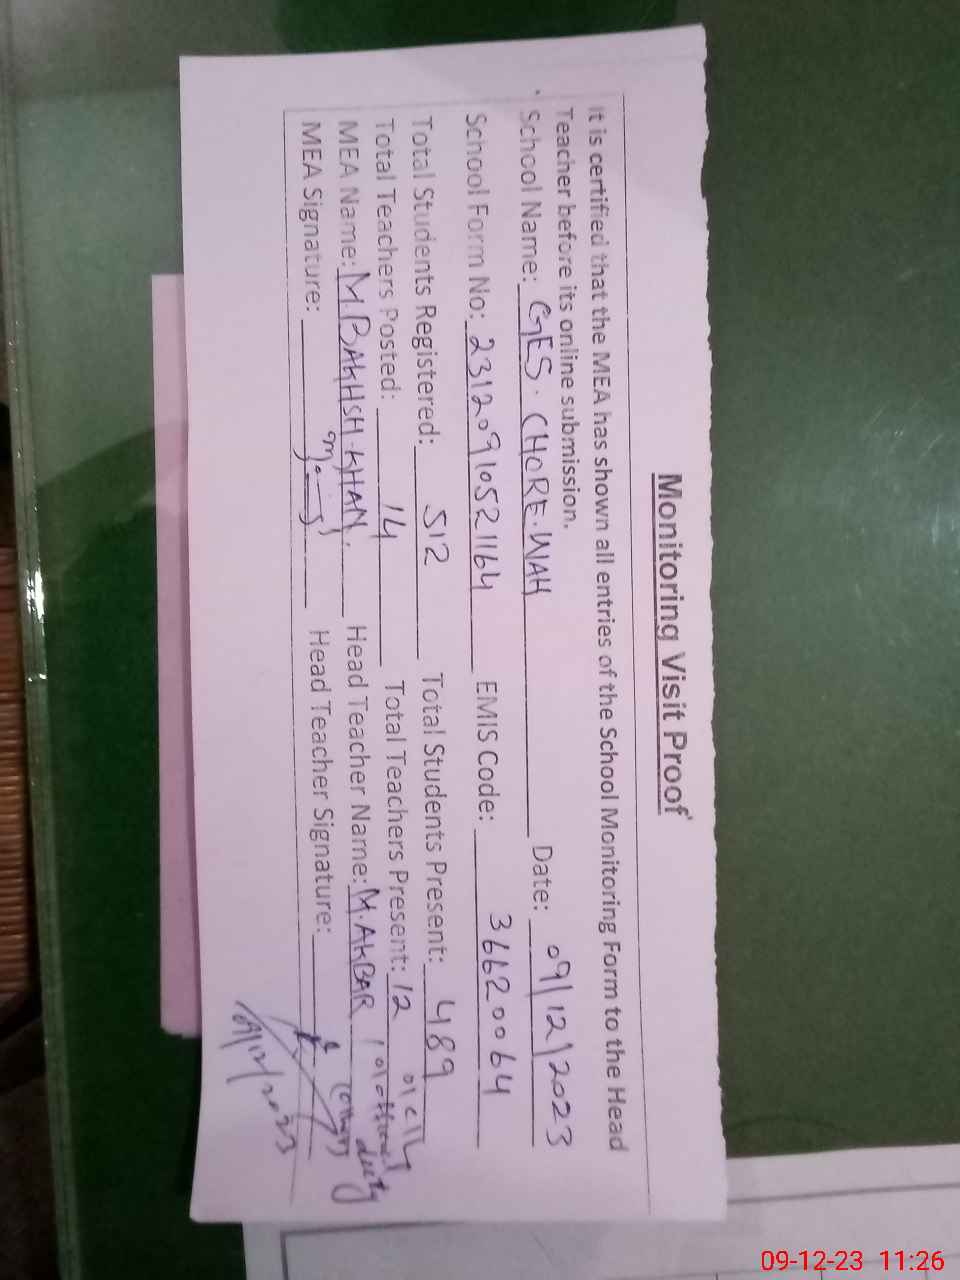 Monitoring Visit Proof
It is certified that the MEA has shown all entries of the School Monitoring Form to the Head
Teacher before its online submission.
School Name: GES. CHORE. WAH Date: 09/12/2023
School Form No: 23120910521164 EMIS Code: 36620064
Total Students Registered: 512 Total Students Present: 489
Total Teachers Posted: 14 Total Teachers Present: 12 01 C/L
1 official duty
MEA Name: M. BAKHSH. KHAN. Head Teacher Name: M. AKBAR
MEA Signature: Head Teacher Signature:
09/12/2023
09-12-23 11:26